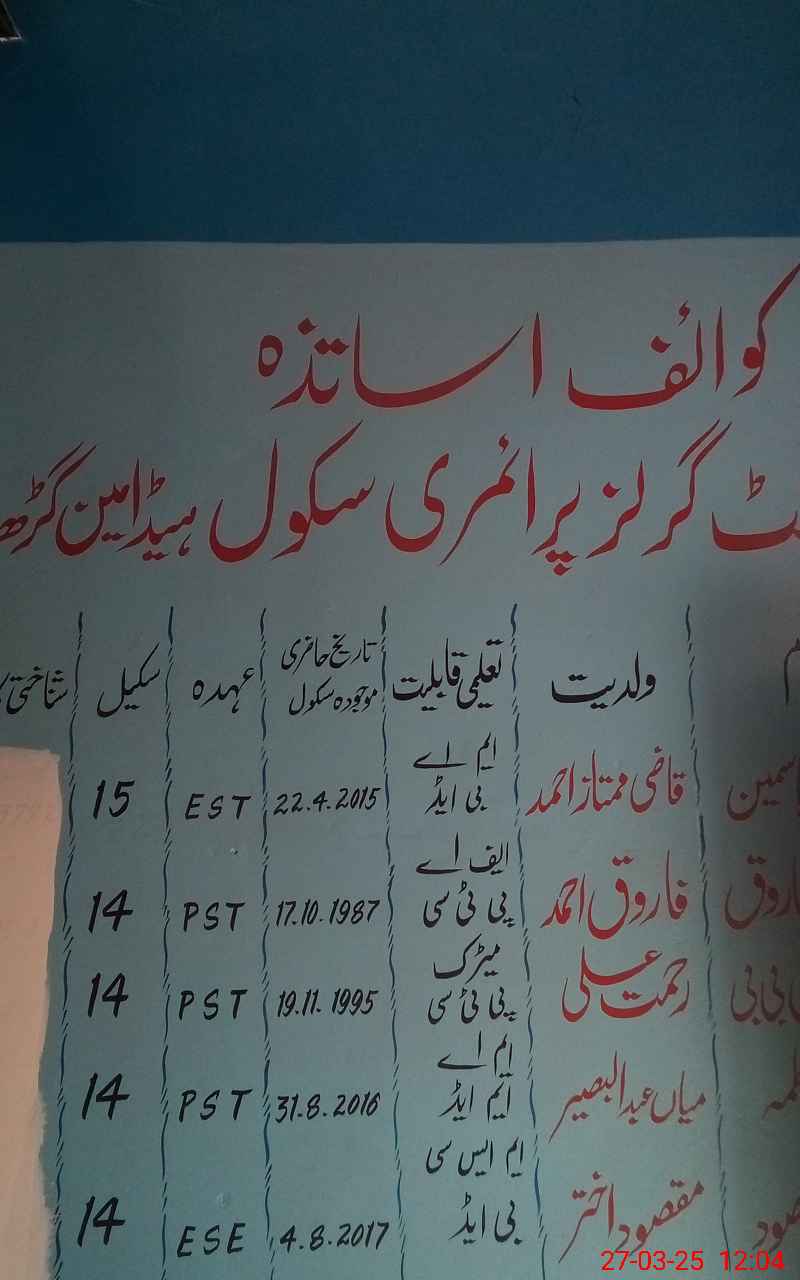 کوائف اساتذہ
گرلز پرائمری سکول ہیڈ امین گڑھ
ولدیت تعلیمی قابلیت تاریخ حاضری موجودہ سکول عہدہ سکیل شناختی
یاسمین قاضی ممتاز احمد ایم اے بی ایڈ 22.4.2015 EST 15
فاروق احمد ایف اے پی ٹی سی 17.10.1987 PST 14
بی بی رحمت علی میٹرک پی ٹی سی 19.11.1995 PST 14
میاں عبدالبصیر ایم اے ایم ایڈ 31.8.2016 PST 14
مقصود اختر ایم ایس سی بی ایڈ 4.8.2017 ESE 14
27-03-25 12:04